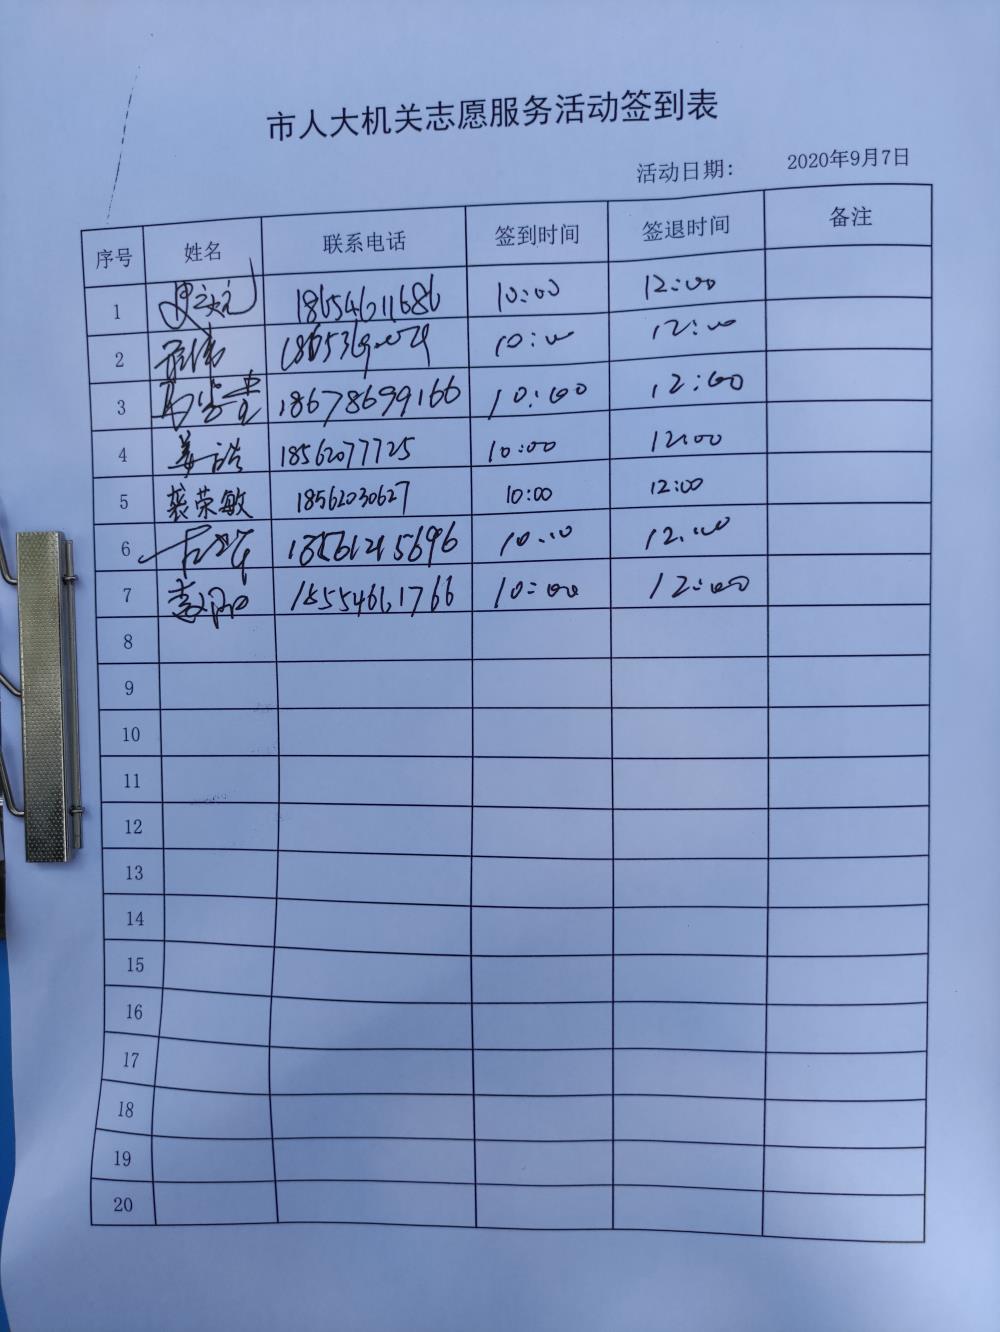 市人大机关志愿服务活动签到表
活动日期: 2020年9月7日
序号 姓名 联系电话 签到时间 签退时间 备注
1 18654611686 10:00 12:00
2 10:00 12:00
3 18678699166 10:00 12:00
4 姜浩 18562077725 10:00 12:00
5 裴荣敏 18562030627 10:00 12:00
6 18561215696 10:00 12:00
7 18554661766 10:00 12:00
8
9
10
11
12
13
14
15
16
17
18
19
20